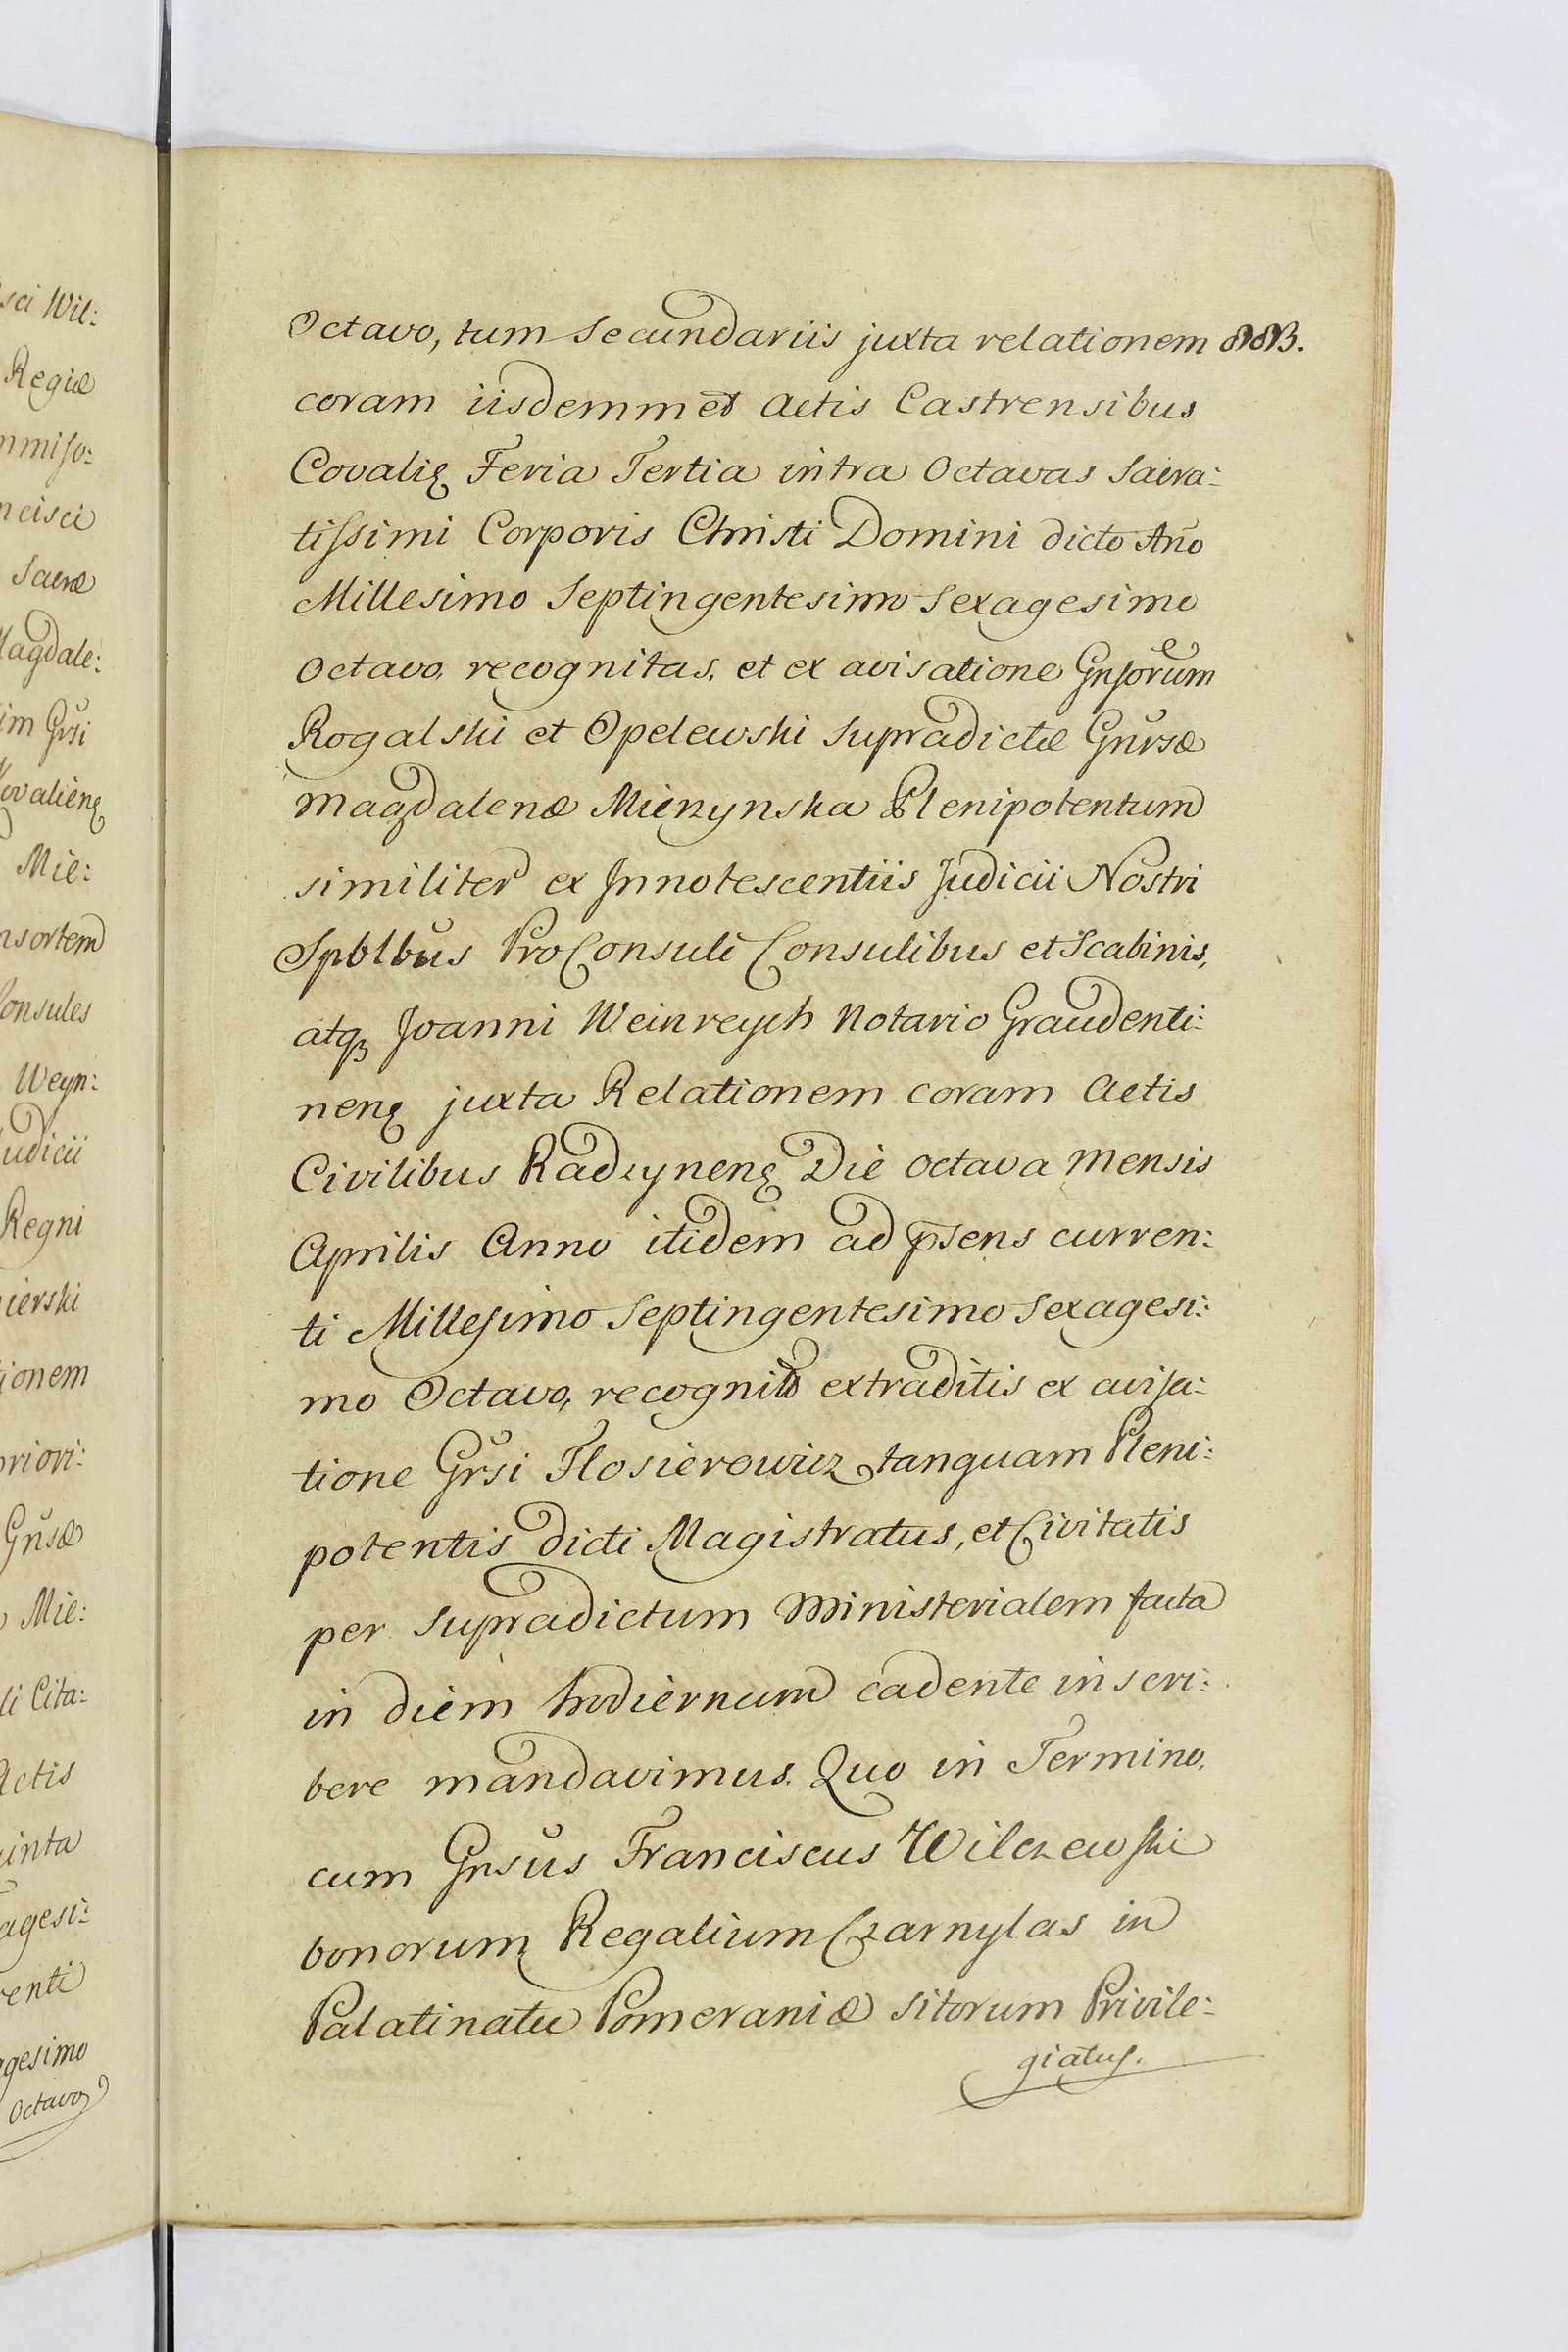 sci Wil:
Regiæ
mmiſo:
ncisci
Sacræ
Magdale:
im Grsi
Kovalienę
Mie:
nsortem
Consules
Weyn:
Judicii
Regni
ierski
tionem
priori:
Gnsæ
Mie:
li Cita:
Actis
uinta
agesi:
renti
agesimo
Octavo
Octavo, tum Secundariis juxta relationem
coram iisdemmet Actis Castrensibus
Covalię Feria Tertia intra Octavas Sacra:
tiſsimi Corporis Christi Domini dicto Año
Millesimo Septingentesimo Sexagesimo
Octavo, recognitas, et ex avisatione Gnſorum
Rogalski et Opelewski Supradictæ Gnrsæ
Magdalenæ Mierzynska Plenipotentum
similiter ex Innotescentiis Judicii Nostri
Spblbus ProConsuli Consulibus et Scabinis,
atqꝫ Joanni Weinreych Notario Graudenti:
nenę juxta Relationem coram Actis
Civilibus Radzynenę Die Octava Mensis
Aprilis Anno itidem ad p̄sens curren:
ti Milleſimo Septingentesimo Sexagesi:
mo Octavo, recognito extraditis ex aviſa:
tione Grsi Flosierowicz tanquam Pleni:
potentis dicti Magistratus, et Civitatis
per Supradictum Ministerialem facta
in diem hodiernum cadente inscri:
bere mandavimus. Quo in Termino,
cum Gnsus Franciscus Wilczewſki
bonorum Regalium Czarnylas in
Palatinatu Pomeraniæ Sitorum Privile:
giatuſ.